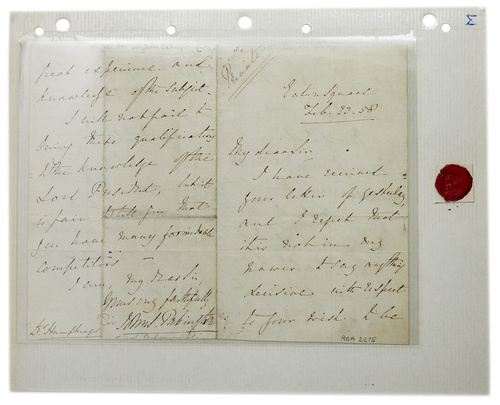 Private
Eaton Square
Feb. 23. 58
My dear Sir
I have received
your letter of yesterday
and I regret that
it is not in my
power to say anything
decisive with respect
to your wish to be
great experience and
knowledge of the subject.
I will not fail to
bring these qualifications
to the knowledge of the
Lord President, but it
is fair to tell you that
you have many formidable
competitors
I am, my dear Sir,
Yours very faithfully
Dr Humphrey
RGA 2275
Σ